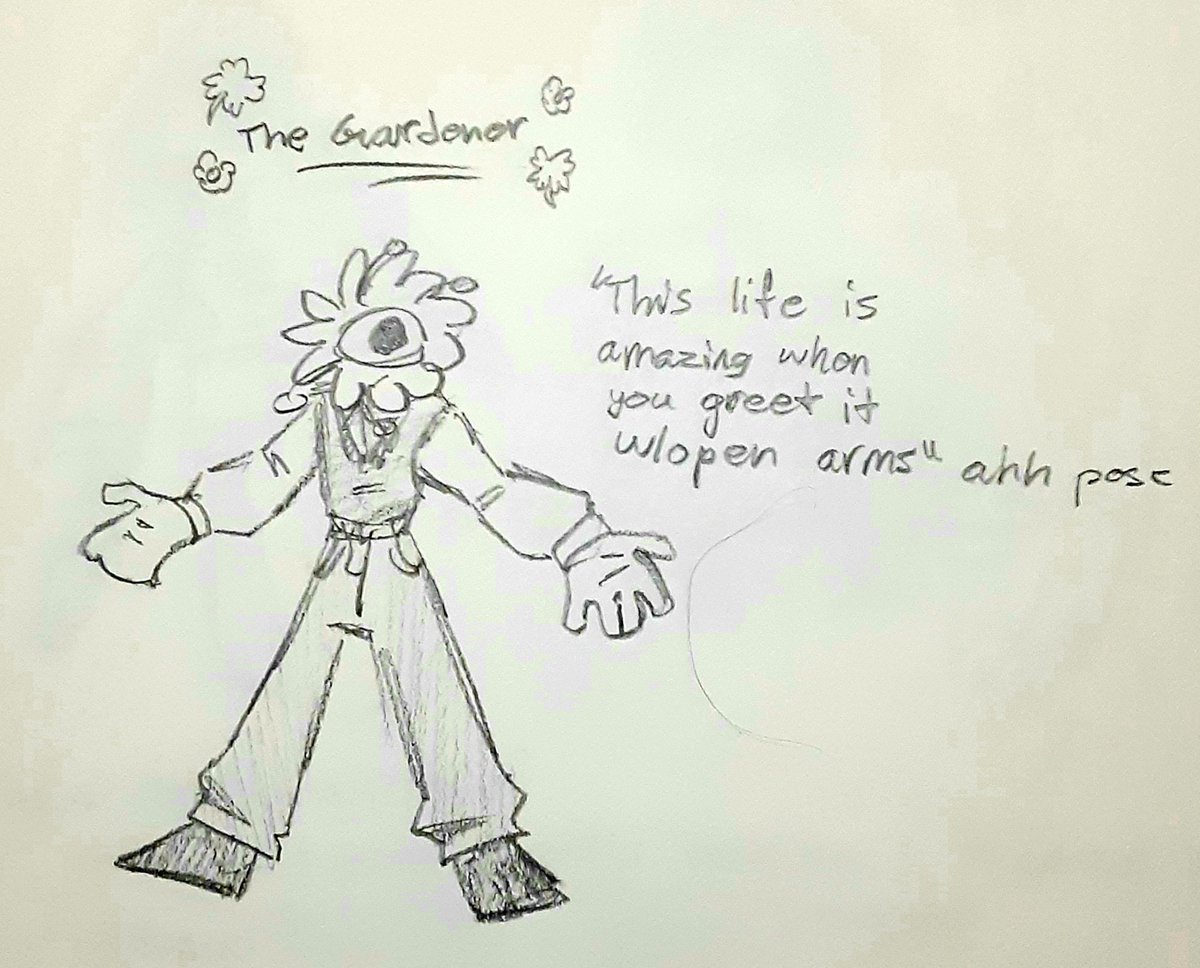 The Gardener
"This life is
amazing when
you greet it
w/open arms" ahh pose